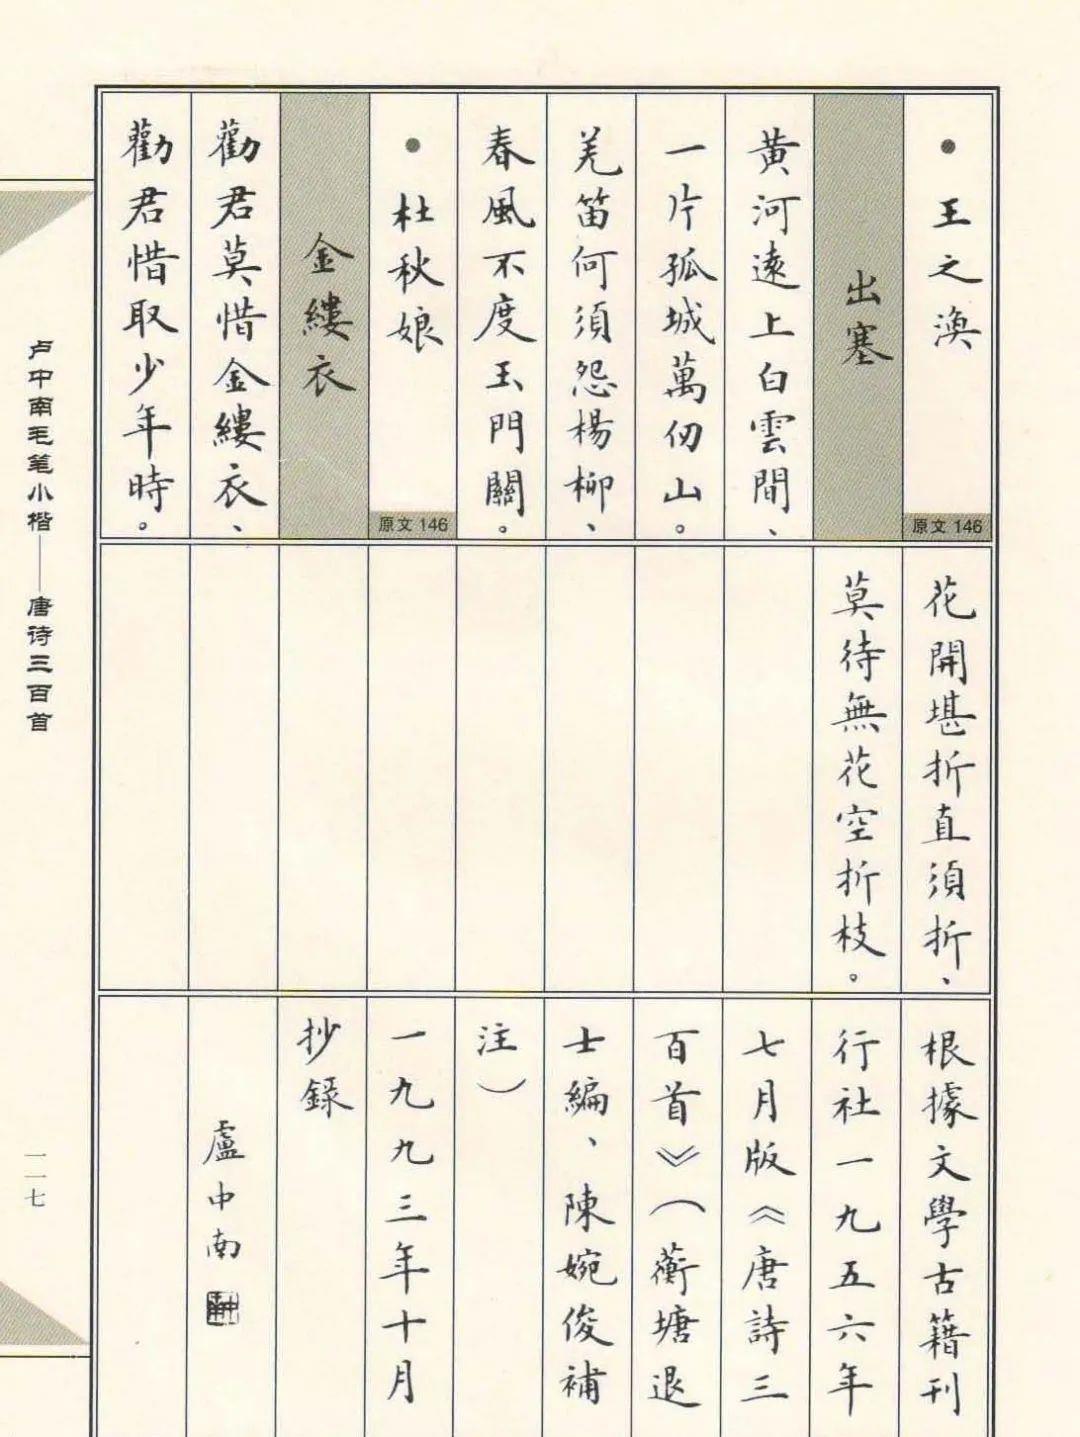 王之渙
原文 146
出塞
黃河遠上白雲間、
一片孤城萬仞山。
羌笛何須怨楊柳、
春風不度玉門關。
杜秋娘
原文 146
金縷衣
勸君莫惜金縷衣、
勸君惜取少年時。
花開堪折直須折、
莫待無花空折枝。
根據文學古籍刊
行社一九五六年
七月版《唐詩三
百首》（蘅塘退
士編、陳婉俊補
注）
一九九三年十月
抄錄
盧中南
卢中南毛笔小楷——唐诗三百首
一一七